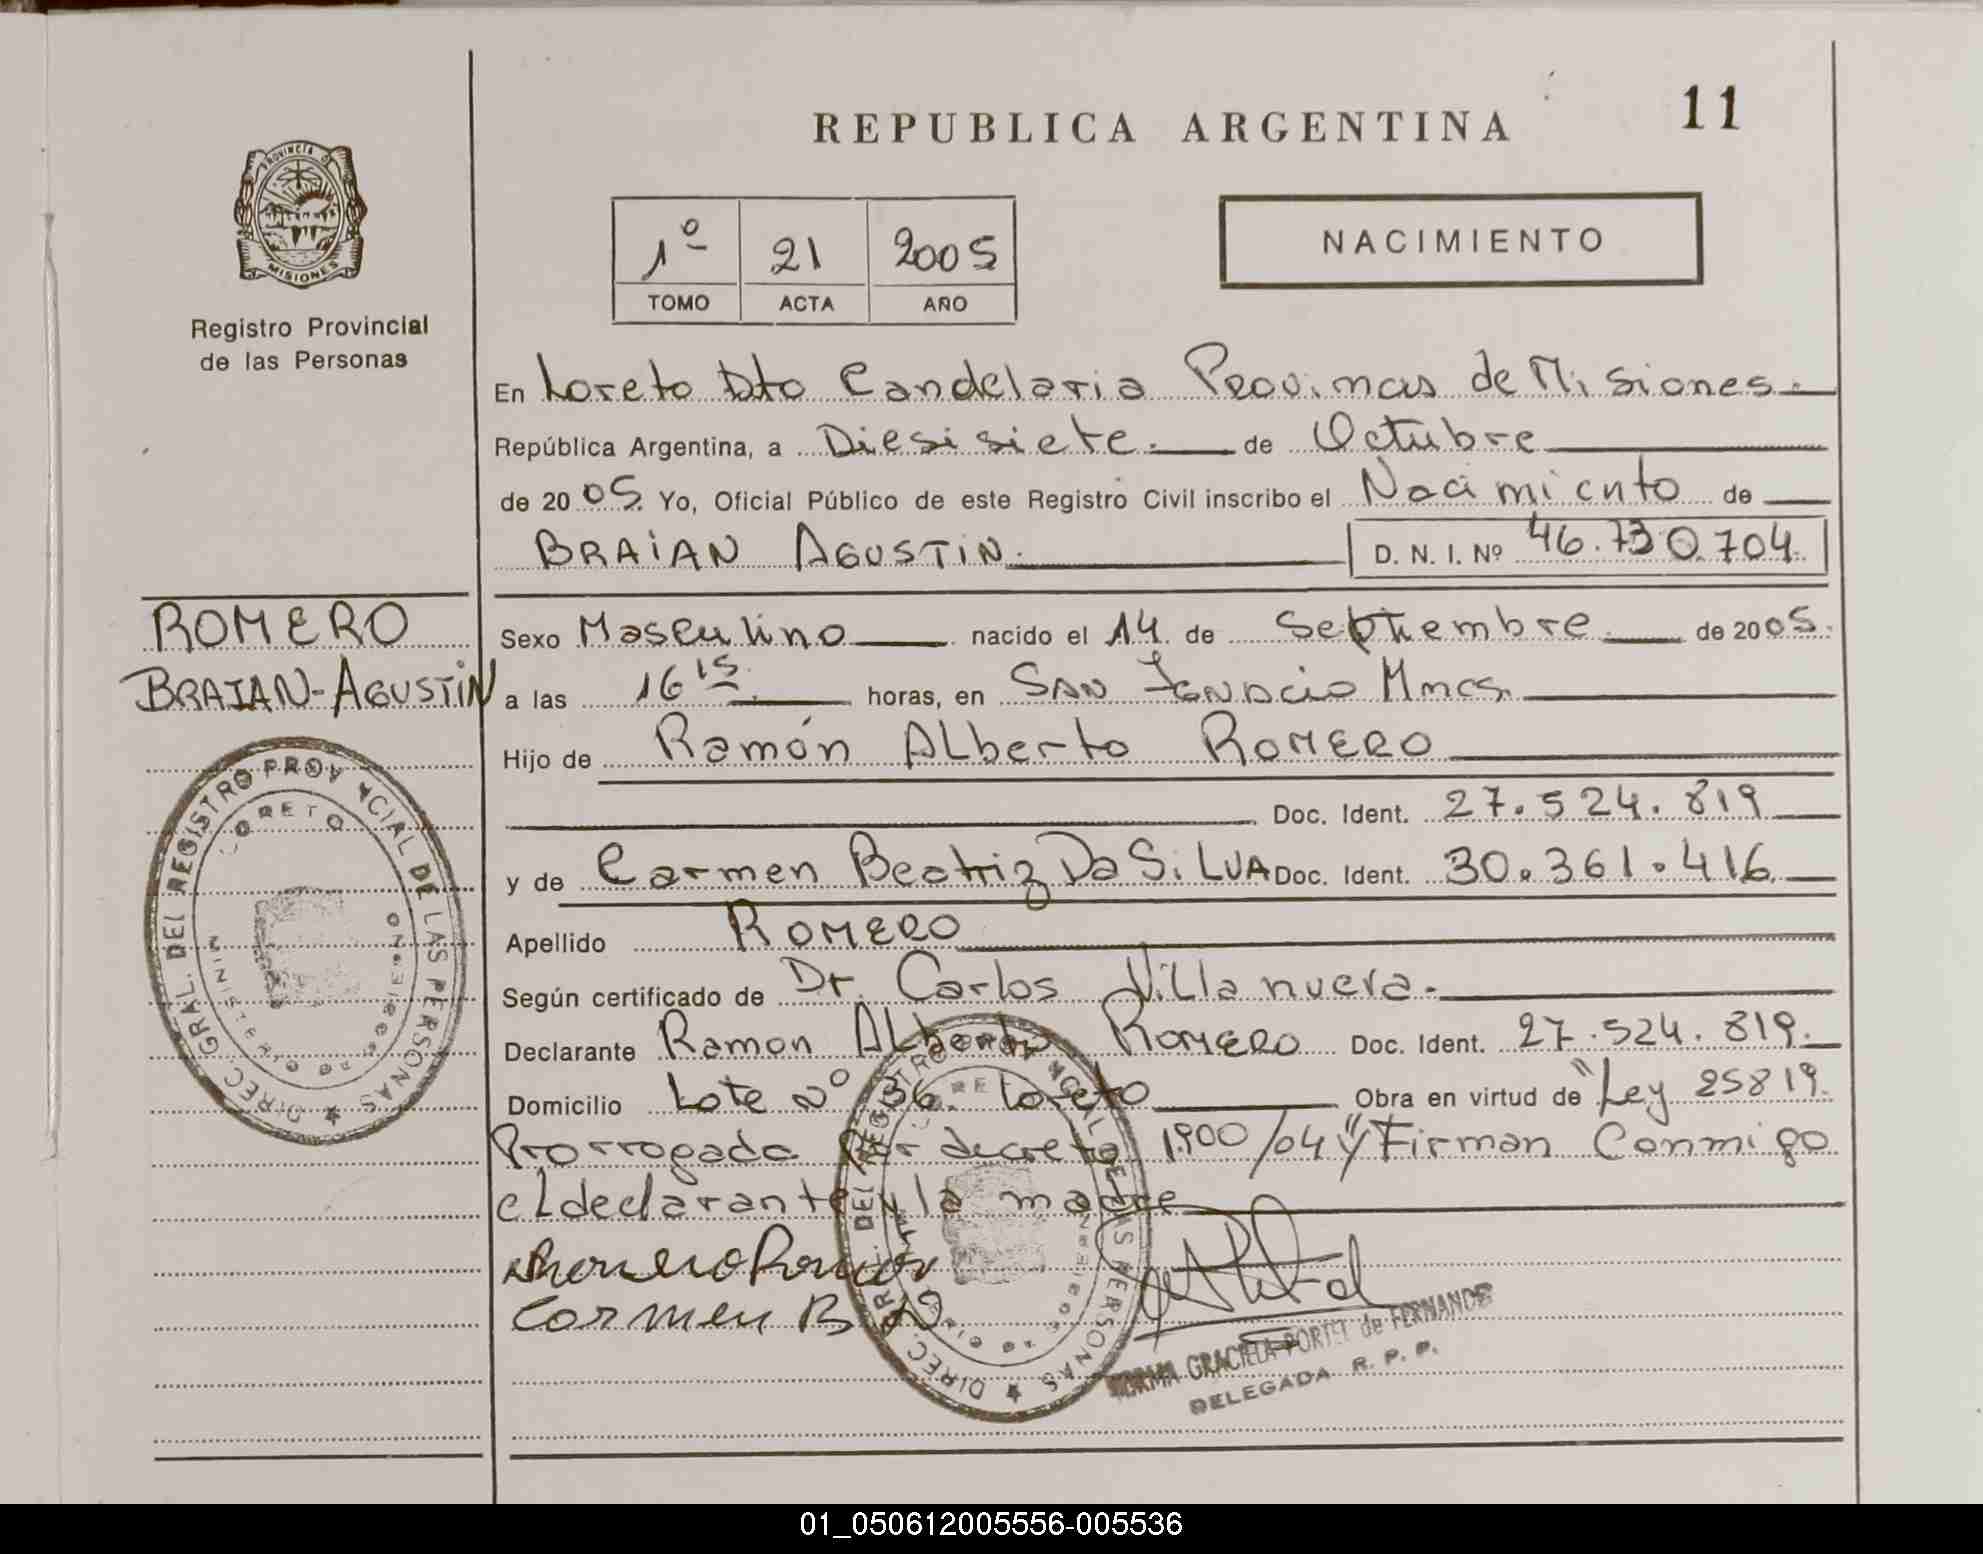 REPUBLICA ARGENTINA
11
PROVINCIA DE
MISIONES
Registro Provincial
de las Personas
1º 21 2005
TOMO ACTA AÑO
NACIMIENTO
En Loreto Dto Candelaria Provincias de Misiones.
República Argentina, a Diesisiete. de Octubre
de 2005. Yo, Oficial Público de este Registro Civil inscribo el Nacimiento de
BRAIAN AGUSTIN. D. N. I. Nº 46.730.704.
ROMERO
BRAIAN-AGUSTIN
Sexo Masculino nacido el 14 de Septiembre de 2005.
a las 16 15 horas, en SAN IGNACIO Mnes.
Hijo de Ramón ALberto ROMERO
Doc. Ident. 27.524.819
y de Carmen Beatriz Da SiLVA Doc. Ident. 30.361.416
Apellido ROMERO
Según certificado de Dr. Carlos Villanueva.
Declarante Ramon ALberto ROMERO Doc. Ident. 27.524.819.
Domicilio Lote Nº 36. Loreto Obra en virtud de "Ley 25819.
Prorrogado Por decreto 1900/04" y Firman Conmigo
el declarante y la madre
Romero Ramon
Carmen B D
NORMA GRACIELA PORTEL de FERNANDE
DELEGADA R. P. P.
DIREC. GRAL. DEL REGISTRO PROVINCIAL DE LAS PERSONAS
LORETO
MINISTERIO DE GOBIERNO
DIREC. GRAL. DEL REGISTRO PROVINCIAL DE LAS PERSONAS
01_050612005556-005536